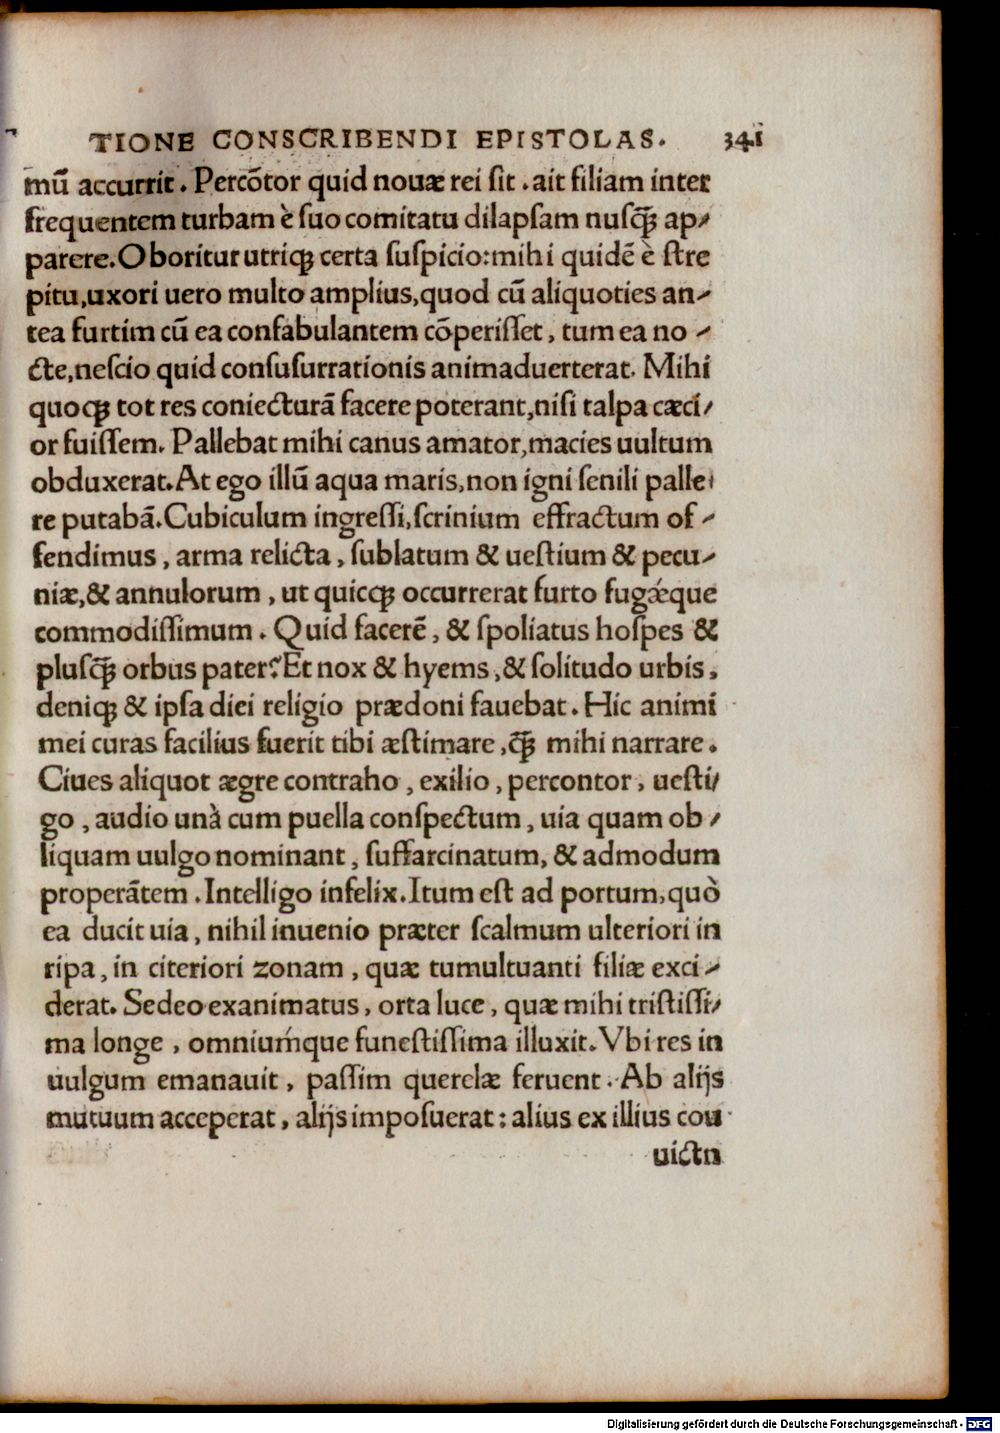 TIONE CONSCRIBENDI EPISTOLAS. 341
mū accurrit. Percōtor quid nouæ rei ſit. ait filiam inter
frequentem turbam è ſuo comitatu dilapſam nuſq̄ꝫ ap-
parere. Oboritur utriqꝫ certa ſuſpicio: mihi quidē è ſtre
pitu, uxori uero multo amplius, quod cū aliquoties an-
tea furtim cū ea confabulantem cōperiſſet, tum ea no-
cte, neſcio quid conſuſurrationis animaduerterat. Mihi
quoqꝫ tot res coniecturā facere poterant, niſi talpa cæci-
or fuiſſem. Pallebat mihi canus amator, macies uultum
obduxerat. At ego illū aqua maris, non igni ſenili palle-
re putabā. Cubiculum ingreſſi, ſcrinium effractum of-
fendimus, arma relicta, ſublatum & ueſtium & pecu-
niæ, & annulorum, ut quicqꝫ occurrerat furto fugǽque
commodiſſimum. Quid facerē, & ſpoliatus hoſpes &
pluſq̄ꝫ orbus pater? Et nox & hyems, & ſolitudo urbis,
deniqꝫ & ipſa diei religio prædoni fauebat. Hic animi
mei curas facilius fuerit tibi æſtimare, q̄ꝫ mihi narrare.
Ciues aliquot ægre contraho, exilio, percontor, ueſti-
go, audio unà cum puella conſpectum, uia quam ob-
liquam uulgo nominant, ſuffarcinatum, & admodum
properātem. Intelligo infelix. Itum eſt ad portum, quò
ea ducit uia, nihil inuenio præter ſcalmum ulteriori in
ripa, in citeriori zonam, quæ tumultuanti filiæ exci-
derat. Sedeo exanimatus, orta luce, quæ mihi triſtiſſi-
ma longe, omniuḿque funeſtiſſima illuxit. Vbi res in
uulgum emanauit, paſſim querelæ feruent. Ab alijs
mutuum acceperat, alijs impoſuerat: alius ex illius con
uictu
Digitalisierung gefördert durch die Deutsche Forschungsgemeinschaft - DFG